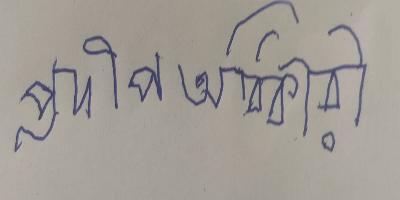 প্রদীপ অধিকারী